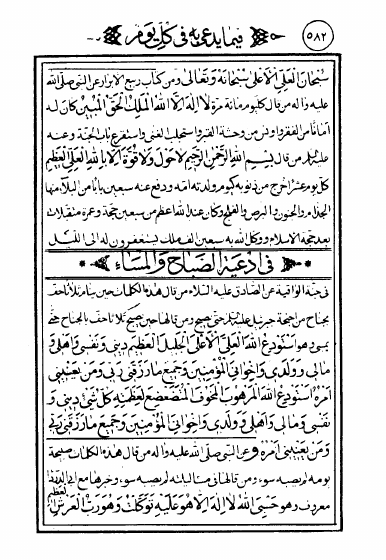 فيما يدعى به في كل يوم
٥٨٢
سُبْحَانَ الْعَلِيِّ الْأَعْلَى سُبْحَانَهُ وَتَعَالَى ومن كتاب ربيع الابرار عن النبي صلى الله
عليه واله من قال كل يوم مائة مرة لَا إِلَهَ إِلَّا اللهُ الْمَلِكُ الْحَقُّ الْمُبِينُ كان له
امانا من الفقر وامن من وحشة القبر واستجلب الغنى واستقرع باب الجنة وعنه
من قال بِسْمِ اللهِ الرَّحْمَنِ الرَّحِيمِ لَا حَوْلَ وَلَا قُوَّةَ إِلَّا بِاللهِ الْعَلِيِّ الْعَظِيمِ
كل يوم عشرا خرج من ذنوبه كيوم ولدته امه ودفع عنه سبعين بابا من البلاء منها
الجذام والجنون والبرص والفالج وكان عند الله اعظم من سبعين حجة وعمرة متقبلات
بعد حجة الاسلام ووكل الله به سبعين الف ملك يستغفرون له الى الليل
في ادعية الصباح والمساء
في جنة الواقية عن الصادق عليه السلام من قال هذه الكلمات حين يمسي ثلاثا حف
بجناح من اجنحة جبرئيل حتى يصبح ومن قالها حين يصبح ثلاثا حف بالجناح حتى
يمسي وهو أَسْتَوْدِعُ اللهَ الْعَلِيَّ الْأَعْلَى الْجَلِيلَ الْعَظِيمَ دِينِي وَنَفْسِي وَأَهْلِي وَ
مَالِي وَوَلَدِي وَإِخْوَانِيَ الْمُؤْمِنِينَ وَجَمِيعَ مَا رَزَقَنِي رَبِّي وَمَنْ يَعْنِينِي
أَمْرُهُ أَسْتَوْدِعُ اللهَ الْمَرْهُوبَ الْمَخُوفَ الْمُتَضَعْضِعَ لِعَظَمَتِهِ كُلُّ شَيْءٍ دِينِي وَ
نَفْسِي وَمَالِي وَأَهْلِي وَوَلَدِي وَإِخْوَانِيَ الْمُؤْمِنِينَ وَجَمِيعَ مَا رَزَقَنِي رَبِّي
وَمَنْ يَعْنِينِي أَمْرُهُ وعن النبي صلى الله عليه واله من قال هذه الكلمات صبيحة
يومه لم يصبه سوء ومن قالها في مساء ليلته لم يصبه سوء وخبرها مع ابي الدرداء
معروف وهو حَسْبِيَ اللهُ لَا إِلَهَ إِلَّا هُوَ عَلَيْهِ تَوَكَّلْتُ وَهُوَ رَبُّ الْعَرْشِ الْعَظِيمِ